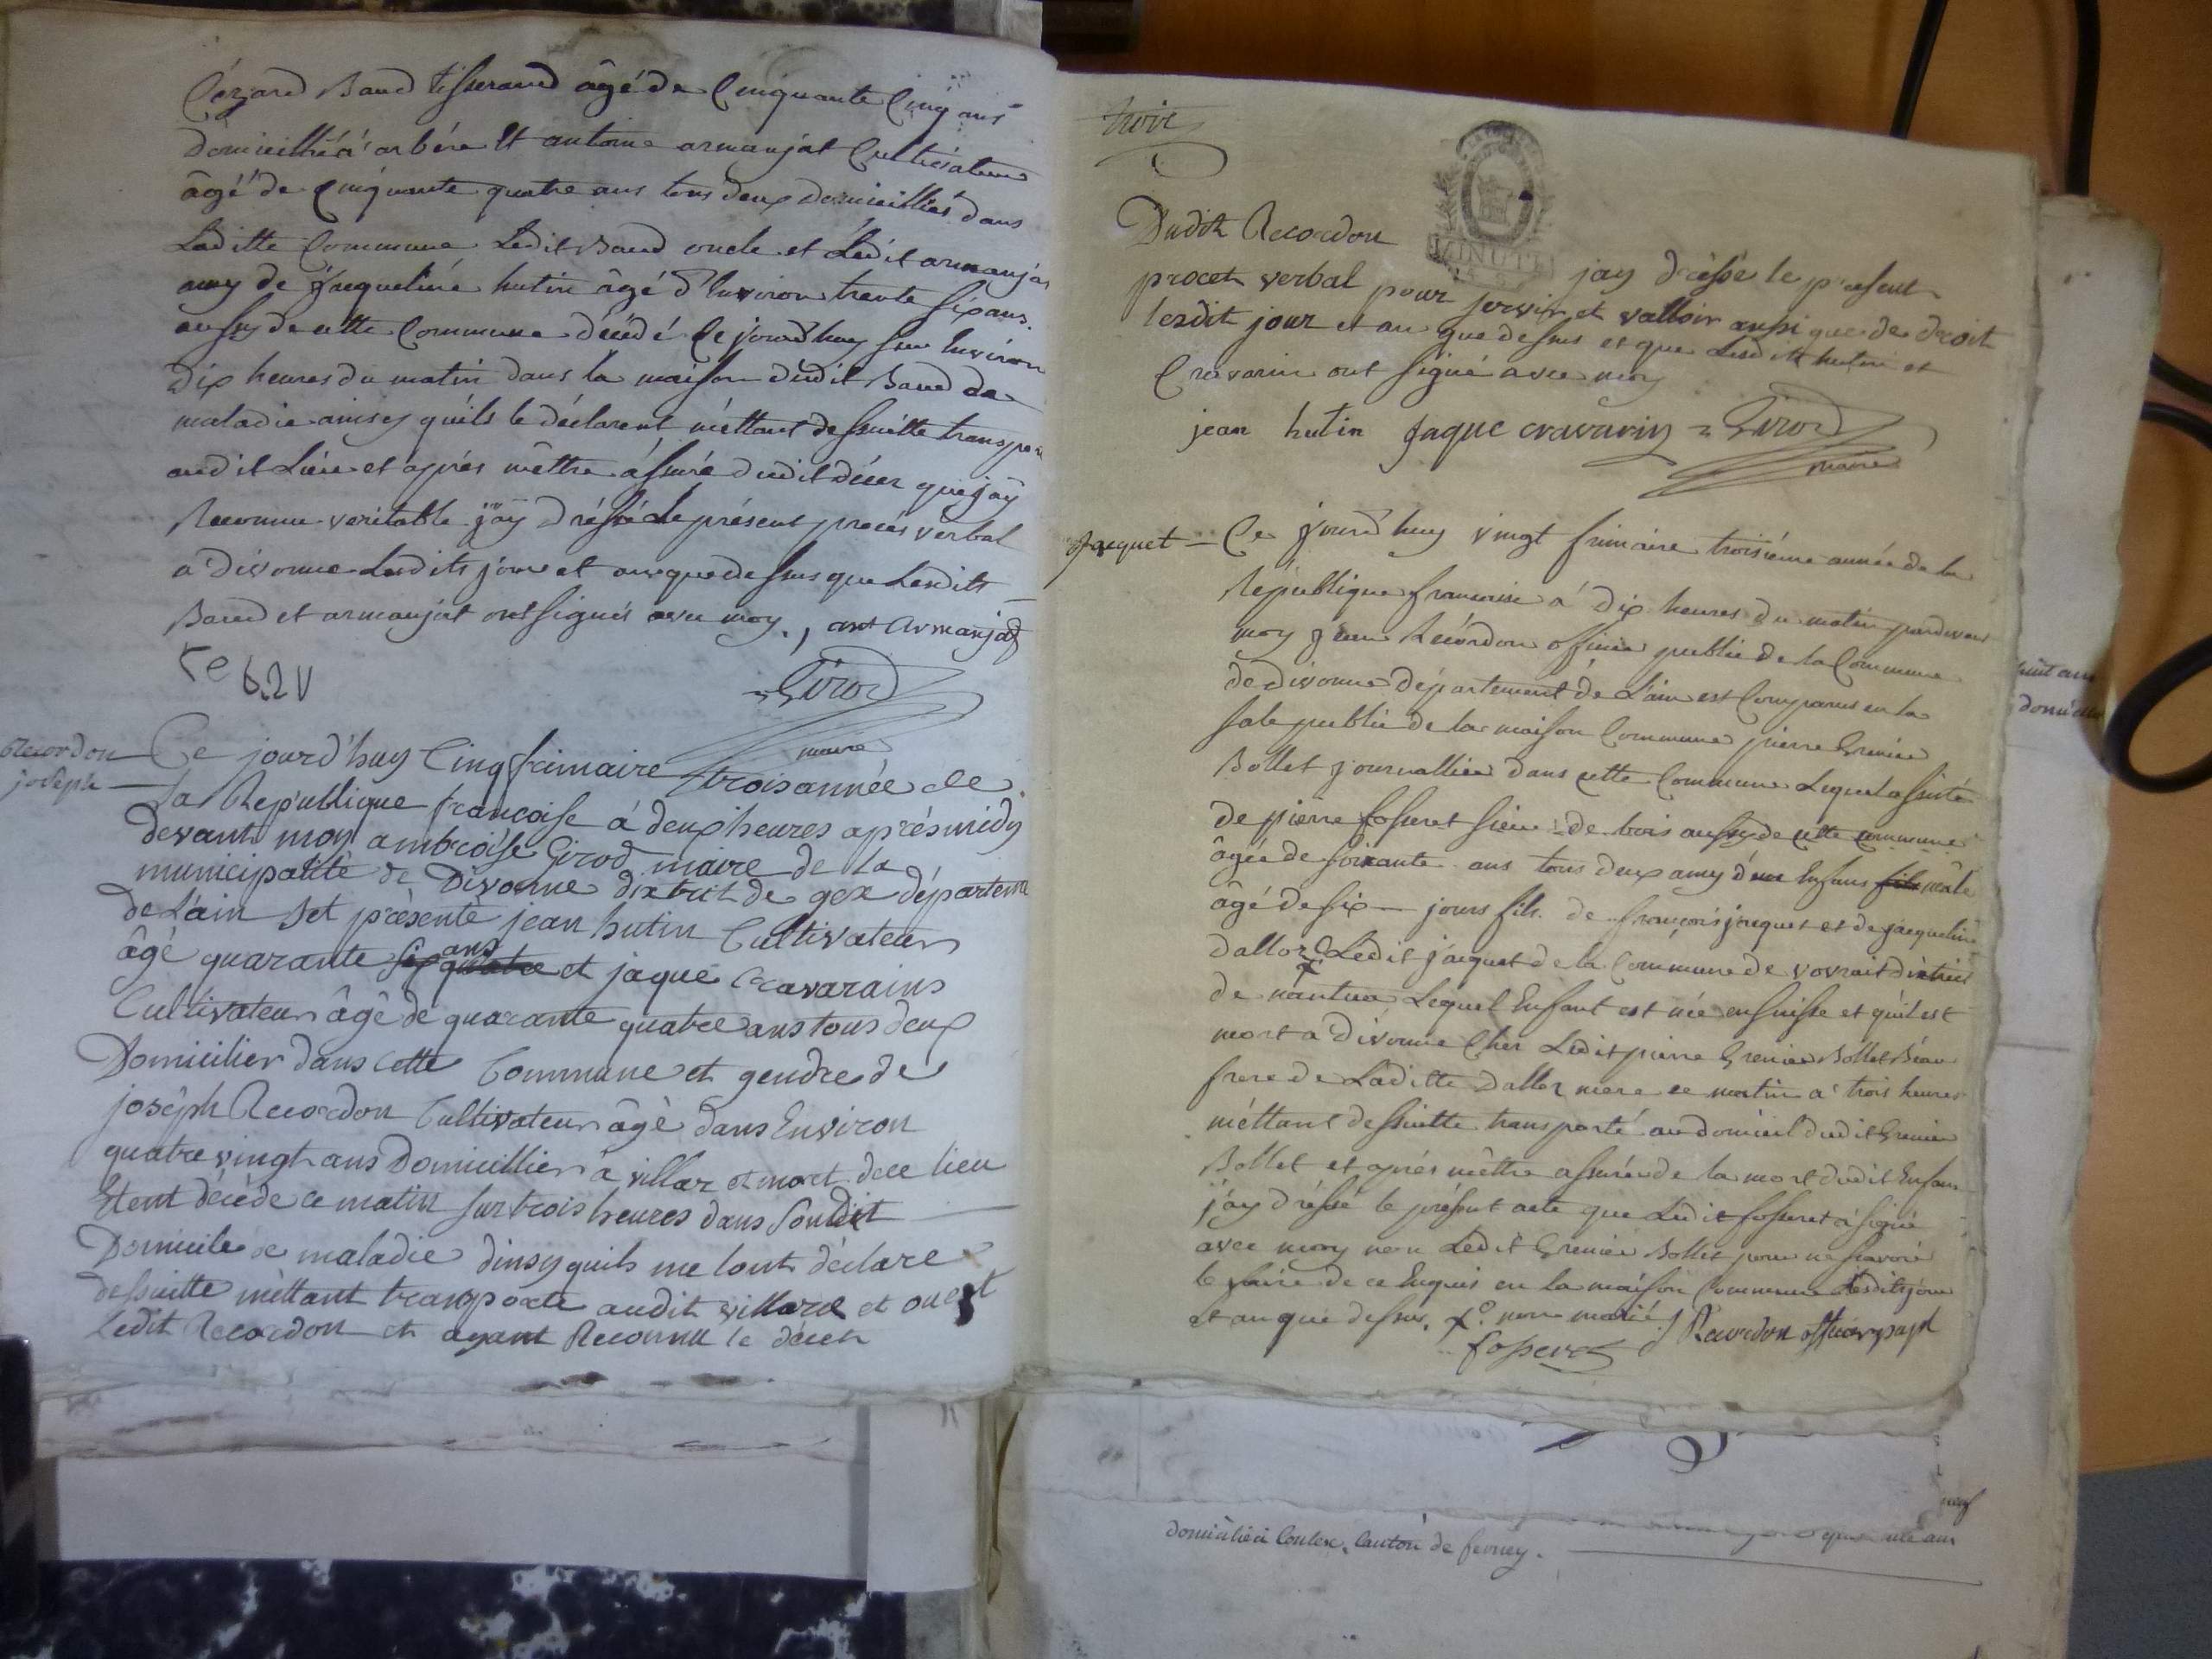 Gérard Baud tisserand âgé de Cinquante Cinq ans
domicillié à arbére Et antoine armanjat Cultivateur
âgé de Cinquante quatre ans tous deux domicilliés dans
Laditte Commune, Ledit Baud oncle et Ledit armanjat
amy de jacqueline hutin âgé d'Environ trente six ans.
aussy de cette Commune décédé Ce jourd'huy sur Environ
Dix heures du matin dans la maison dudit Baud de
maladie ainsey qu'ils le déclarent méttant dessuitte transpor
audit Lieu et aprés mêttre assuré dudit décer que jay
Reconnu veritable jay dréssé Le présent procés verbal
a divonne Lesdits jour et an que dessus que Lesdits
Baud et armanjat ont signés avec moy ., ant armanjat
Girod
maire
Recordon
joseph
Ce jourd'huy Cinq frimaire trois année de
la Republique francoise a deux heures aprés midy
devant moy ambroise Girod maire de la
municipalité de Divonne dixtrict de gex départeme
de L'ain set présenté jean hutin Cultivateur
âgé quarante six ans quatre et jaque Cravarains
Cultivateur âgé de quarante quatre ans tous deux
Domicilier dans cette Commune et gendre de
joséph Recordon Cultivateur âgé dans Environ
quatre vingt ans Domicillier a villar et mort de ce lieu
Etent décédé ce matin sur trois heures dans Soudit
Domicile de maladie dinsy quils me lont déclare
dessuitte méttant transporté audit villard et ou est
ledit Recordon et ayant Reconnu le décer
troix
MINUTE
Dudit Recordon jay dressé le present
procet verbal pour servir et valloir ansi que de droit
lesdit jour et an que dessus et que Lesdits hutin et
Cravarin ont signé avec moy
jean hutin jaque cravarin Girod
maire
Jacquet
Ce jourd'huy vingt frimaire troisiéme année de la
République francaise a dix heures du matin pardevant
moy jean Recordon officier public de la Commune
de divonne département de L'ain est Comparus en la
sale public de la maison Commune pierre Grenier
Bollet journallier dans cette Commune Lequel assisté
de pierre fosseret sieur de bois aussy de cette commune
âgée de soixante ans tous deux amy d'un Enfans fils mâle
âgé de six jours fils de françois jaquet et de jacqueline
dallor Ledit jacquet de la Commune de vovrait district
de nantua Lequel Enfant est née en suisse et qu'il est
mort a divonne Cher Ledit pierre Grenier Bollet Béau
frere de Laditte dallor mere ce matin a trois heures
méttant dessuitte transporté au domicil dudit Grenier
Bollet et aprés mêttre assurée de la mort dudit Enfan
j'ay dréssé le présent acte que Ledit fosseret a signé
avec moy non Ledit Grenier Bollet pour ne scavoir
le faire de ce Enquis en la maison Commune Lesdits jour
et an que dessus. x° non marié
fosseret J Recordon officier publ
huit ans
neuf
domicilié a Contex. Canton de ferney.